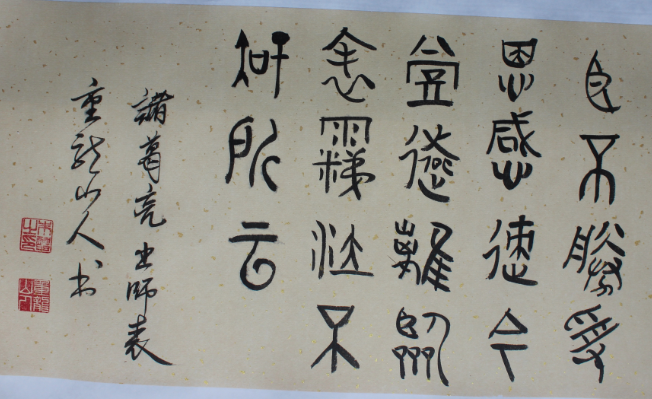 臣不勝受
恩感激今
當遠離臨
表涕泣不
知所云
諸葛亮出師表
重龍山人书